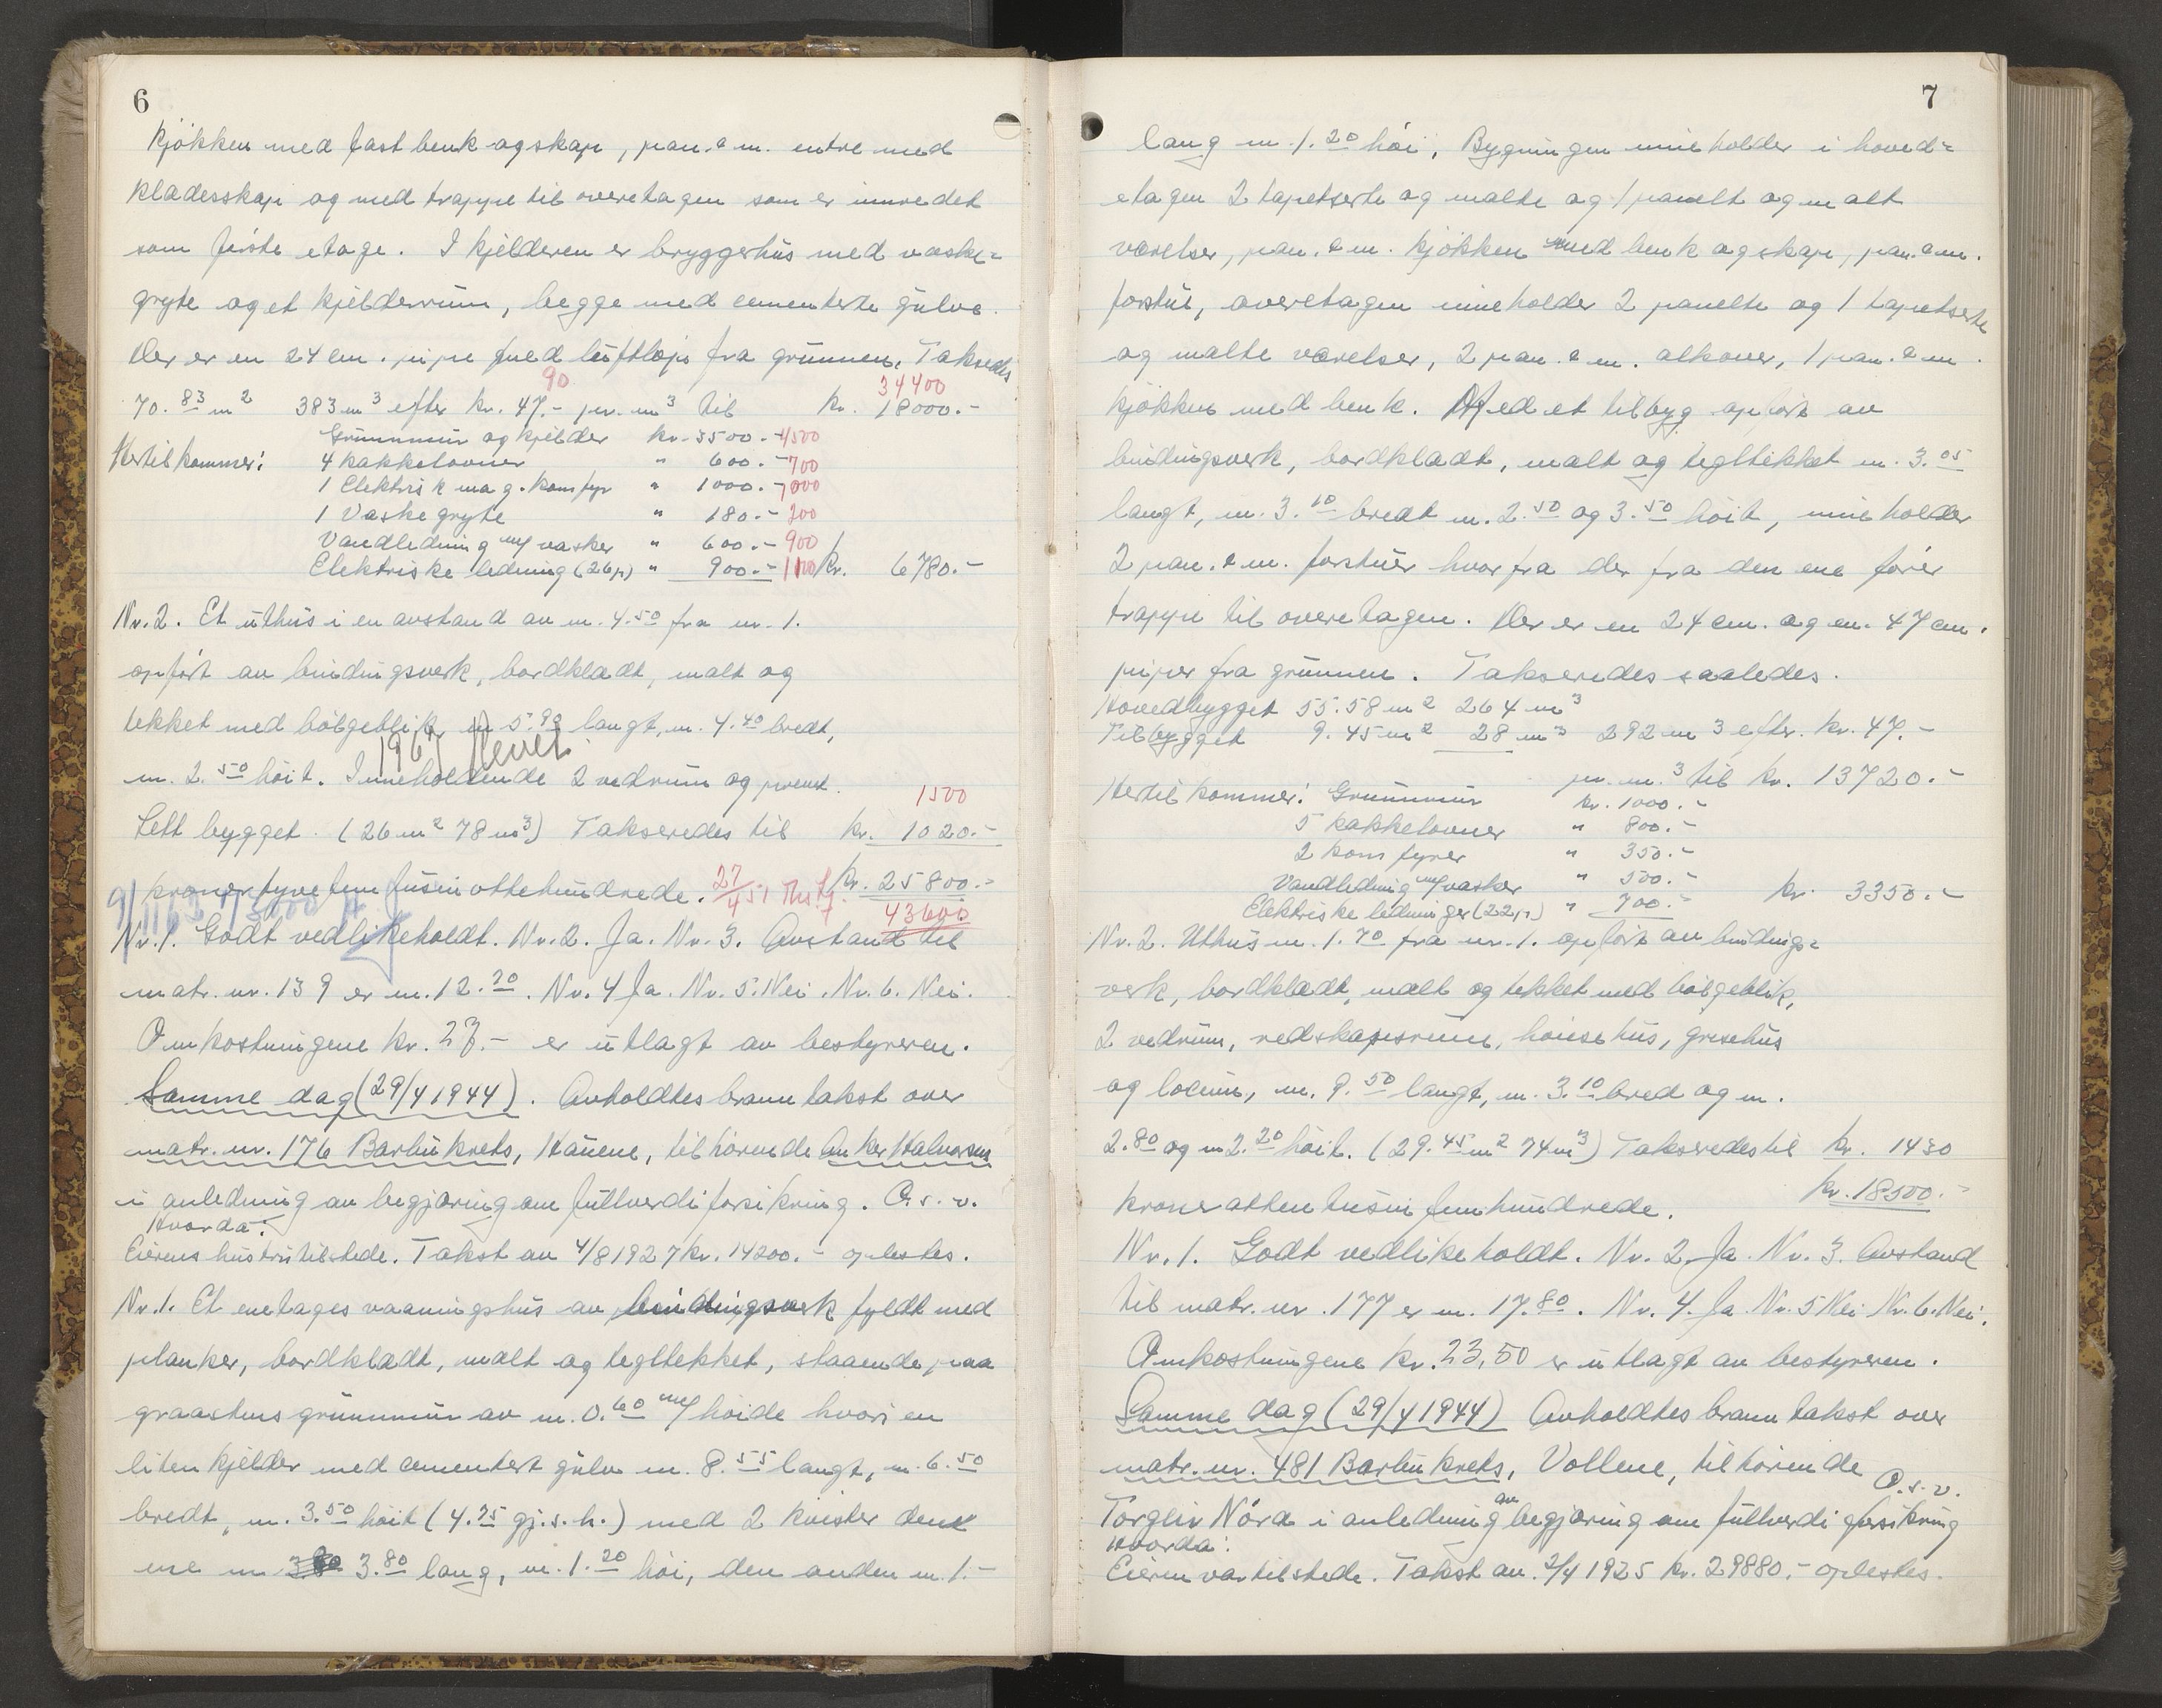 6
Kjökken med fast benk og skap, pan. & m. entre med
klædesskap og med trappe til overetagen som er innredet
som förste etage. I kjelderen er bryggerhus med vaske-
gryte og et kjelderrum, begge med cementerte gulve.
Der er en 24 cm. pipe med luftløp fra grunnen. Takseredes
90 34400
70.83 m2 383 m3 efter kr. 47.- pr. m3 til kr. 18000.-
Hertil kommer: Grunnmur og kjelder kr. 3500.- 4500
4 kakkelovner " 600.- 700
1 Elektrisk mag. komfyr " 1000.- 1000
1 Vaskegryte " 180.- 200
Vandledning m/ vasker " 600.- 900
Elektriske ledning (26 p) " 900.- 1100 kr. 6780.-
Nr. 2. Et uthus i en avstand av m. 4.50 fra nr. 1.
opfört av bindingsverk, bordklædt, malt og
tekket med bölgeblik m 5.90 langt, m. 4.40 bredt,
1967 revet
m. 2.50 höit. Inneholdende 2 vedrum og privet.
1500
Lett bygget. (26 m2 78 m3) Takseredes til kr. 1020.-
kroner fyrefem tusin ottehundrede. 27/4 51 kr. 25800.-
43600
Nr. 1. Godt vedlikeholdt. Nr. 2. Ja. Nr. 3. Avstand til
matr. nr. 139 er m. 12.20. Nr. 4 Ja. Nr. 5. Nei. Nr. 6. Nei.
Omkostningene kr. 27.- er utlagt av bestyreren.
Samme dag (29/4 1944). Avholdtes branntakst over
matr. nr. 176 Barbu krets, Hauene, tilhörende Anker Halvorsen
i anledning av begjæring om fullverdiforsikring. O. s. v.
Hvorda:
Eierens hustru tilstede. Takst av 4/8 1927 kr. 14200.- oplestes.
Nr. 1. Et enetages vaaningshus av bindingsverk fyldt med
planker, bordklædt, malt og tegltekket, staaende paa
graastens grunnmur av m. 0.60 m/ höide hvori en
liten kjelder med cementert gulv m. 8.55 langt, m. 6.50
bredt, m. 3.50 höit (4.75 gj. s. h.) med 2 kvister den
ene m 3.80 lang, m. 1.20 höi, den anden m. 1.-
7
lang m. 1.20 höi, Bygningen inneholder i hoved-
etagen 2 tapetserte og malte og 1 panelt og malt
værelser, pan. & m. kjökken med benk og skap, pan. & m.
forstue, overetagen inneholder 2 panelte og 1 tapetserte
og malte værelser, 2 pan. & m. alkover, 1 pan. & m.
kjökken med benk. Med et tilbyg opfört av
bindingsverk, bordklædt, malt og tegltekket m. 3.05
langt, m. 3.10 bredt m. 2.50 og 3.50 höit, inneholder
2 pan. & m. forstuer hvorfra der fra den ene förer
trappe til overetagen. Der er en 24 cm. og en 47 cm.
piper fra grunnen. Takseredes saaledes.
Hovedbygget 55.58 m2 264 m3
Tilbygget 9.45 m2 28 m3 292 m3 efter kr. 47.-
pr. m.3 til kr. 13720.-
Hertil kommer: Grunnmur kr. 1000.-
5 kakkelovner " 800.-
2 komfyrer " 350.-
Vandledning m/ vasker " 500.-
Elektriske ledninger (22 p) " 700.- kr. 3350.-
Nr. 2. Uthus m. 1.70 fra nr. 1. opfört av bindings-
verk, bordklædt, malt og tekket med bölgeblik,
2 vedrum, redskapsrum, hönsehus, grisehus
og locum, m. 9.50 langt, m. 3.10 bred og m.
2.80 og m 2.20 höit. (29.45 m2 74 m3) Takseredes til kr. 1430
kr. 18500.-
kroner atten tusin femhundrede.
Nr. 1. Godt vedlikeholdt. Nr. 2 Ja. Nr. 3. Avstand
til matr. nr. 177 er m. 17.80. Nr. 4. Ja. Nr. 5 Nei Nr. 6. Nei.
Omkostningene kr. 23,50 er utlagt av bestyreren.
Samme dag (29/4 1944) Avholdtes branntakst over
matr. nr. 481 Barbu krets, Vollene, tilhörende
O. s. v.
Torgeir Nörd i anledning av begjæring om fullverdiforsikring
Hvorda:
Eieren var tilstede. Takst av 2/4 1925 kr. 29880.- oplestes.